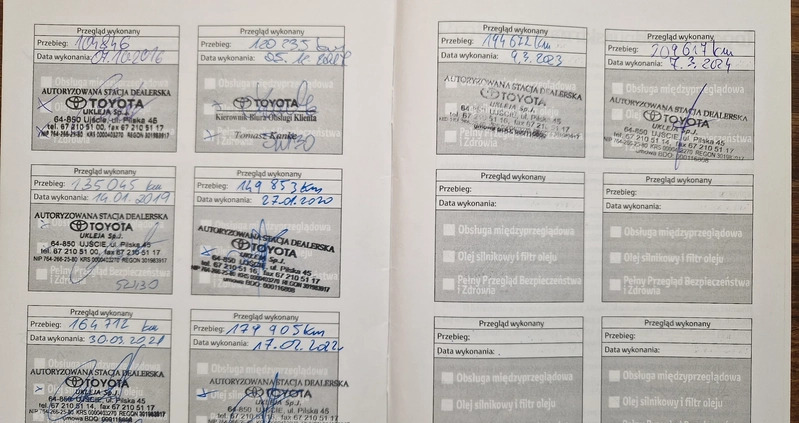 Przegląd wykonany
Przebieg: 104846
Data wykonania: 07.10.2016
Obsługa międzyprzeglądowa
AUTORYZOWANA STACJA DEALERSKA
TOYOTA
UKLEJA Sp.J.
64-850 Ujście, ul. Pilska 45
tel. 67 210 51 00, fax 67 210 51 17
NIP 764-266-25-80 KRS 0000403275 REGON 301983917
Przegląd wykonany
Przebieg: 120 235 km
Data wykonania: 05.12.2017
TOYOTA
Kierownik Biura Obsługi Klienta
Tomasz
Przegląd wykonany
Przebieg: 135045 km
Data wykonania: 14.01.2019
AUTORYZOWANA STACJA DEALERSKA
TOYOTA
UKLEJA Sp.J.
64-850 UJŚCIE, ul. Pilska 45
tel. 67 210 51 00, fax 67 210 51 17
NIP 764-266-25-80 KRS 0000403275 REGON 301983917
Pełny Przegląd Bezpieczeństwa
i Zdrowia
Przegląd wykonany
Przebieg: 149 853 km
Data wykonania: 27.01.2020
AUTORYZOWANA STACJA DEALERSKA
TOYOTA
UKLEJA Sp.J.
64-850 UJŚCIE, ul. Pilska 45
tel. 67 210 51 16, fax 67 210 51 17
NIP 764-266-25-80 KRS 0000403275 REGON 301983917
umowa BDO: 000116808
Przegląd wykonany
Przebieg: 164712 km
Data wykonania: 30.03.2021
AUTORYZOWANA STACJA DEALERSKA
TOYOTA
UKLEJA Sp.J.
64-850 UJŚCIE, ul. Pilska 45
tel. 67 210 51 14, fax 67 210 51 17
NIP 764-266-25-80 KRS 0000403275 REGON 301983917
Przegląd wykonany
Przebieg: 179 905 km
Data wykonania: 17.02.2022
AUTORYZOWANA STACJA DEALERSKA
TOYOTA
UKLEJA Sp.J.
64-850 UJŚCIE, ul. Pilska 45
tel. 67 210 51 16, fax 67 210 51 17
Przegląd wykonany
Przebieg: 194622 km
Data wykonania: 9.3.2023
AUTORYZOWANA STACJA DEALERSKA
TOYOTA
UKLEJA Sp.J.
Przegląd wykonany
Przebieg: 209617 km
Data wykonania: 7.3.2024
AUTORYZOWANA STACJA DEALERSKA
TOYOTA
UKLEJA Sp.J.
64-850 UJŚCIE, ul. Pilska 45
tel. 67 210 51 16, fax 67 210 51 17
NIP 764-266-25-80 KRS 0000403275 REGON 301983917
umowa BDO: 000116808
Przegląd wykonany
Przebieg:
Data wykonania:
Obsługa międzyprzeglądowa
Olej silnikowy i filtr oleju
Pełny Przegląd Bezpieczeństwa
i Zdrowia
Przegląd wykonany
Przebieg:
Data wykonania:
Obsługa międzyprzeglądowa
Olej silnikowy i filtr oleju
Pełny Przegląd Bezpieczeństwa
i Zdrowia
Przegląd wykonany
Przebieg:
Data wykonania:
Obsługa międzyprzeglądowa
Olej silnikowy i filtr oleju
Przegląd wykonany
Przebieg:
Data wykonania:
Obsługa międzyprzeglądowa
Olej silnikowy i filtr oleju